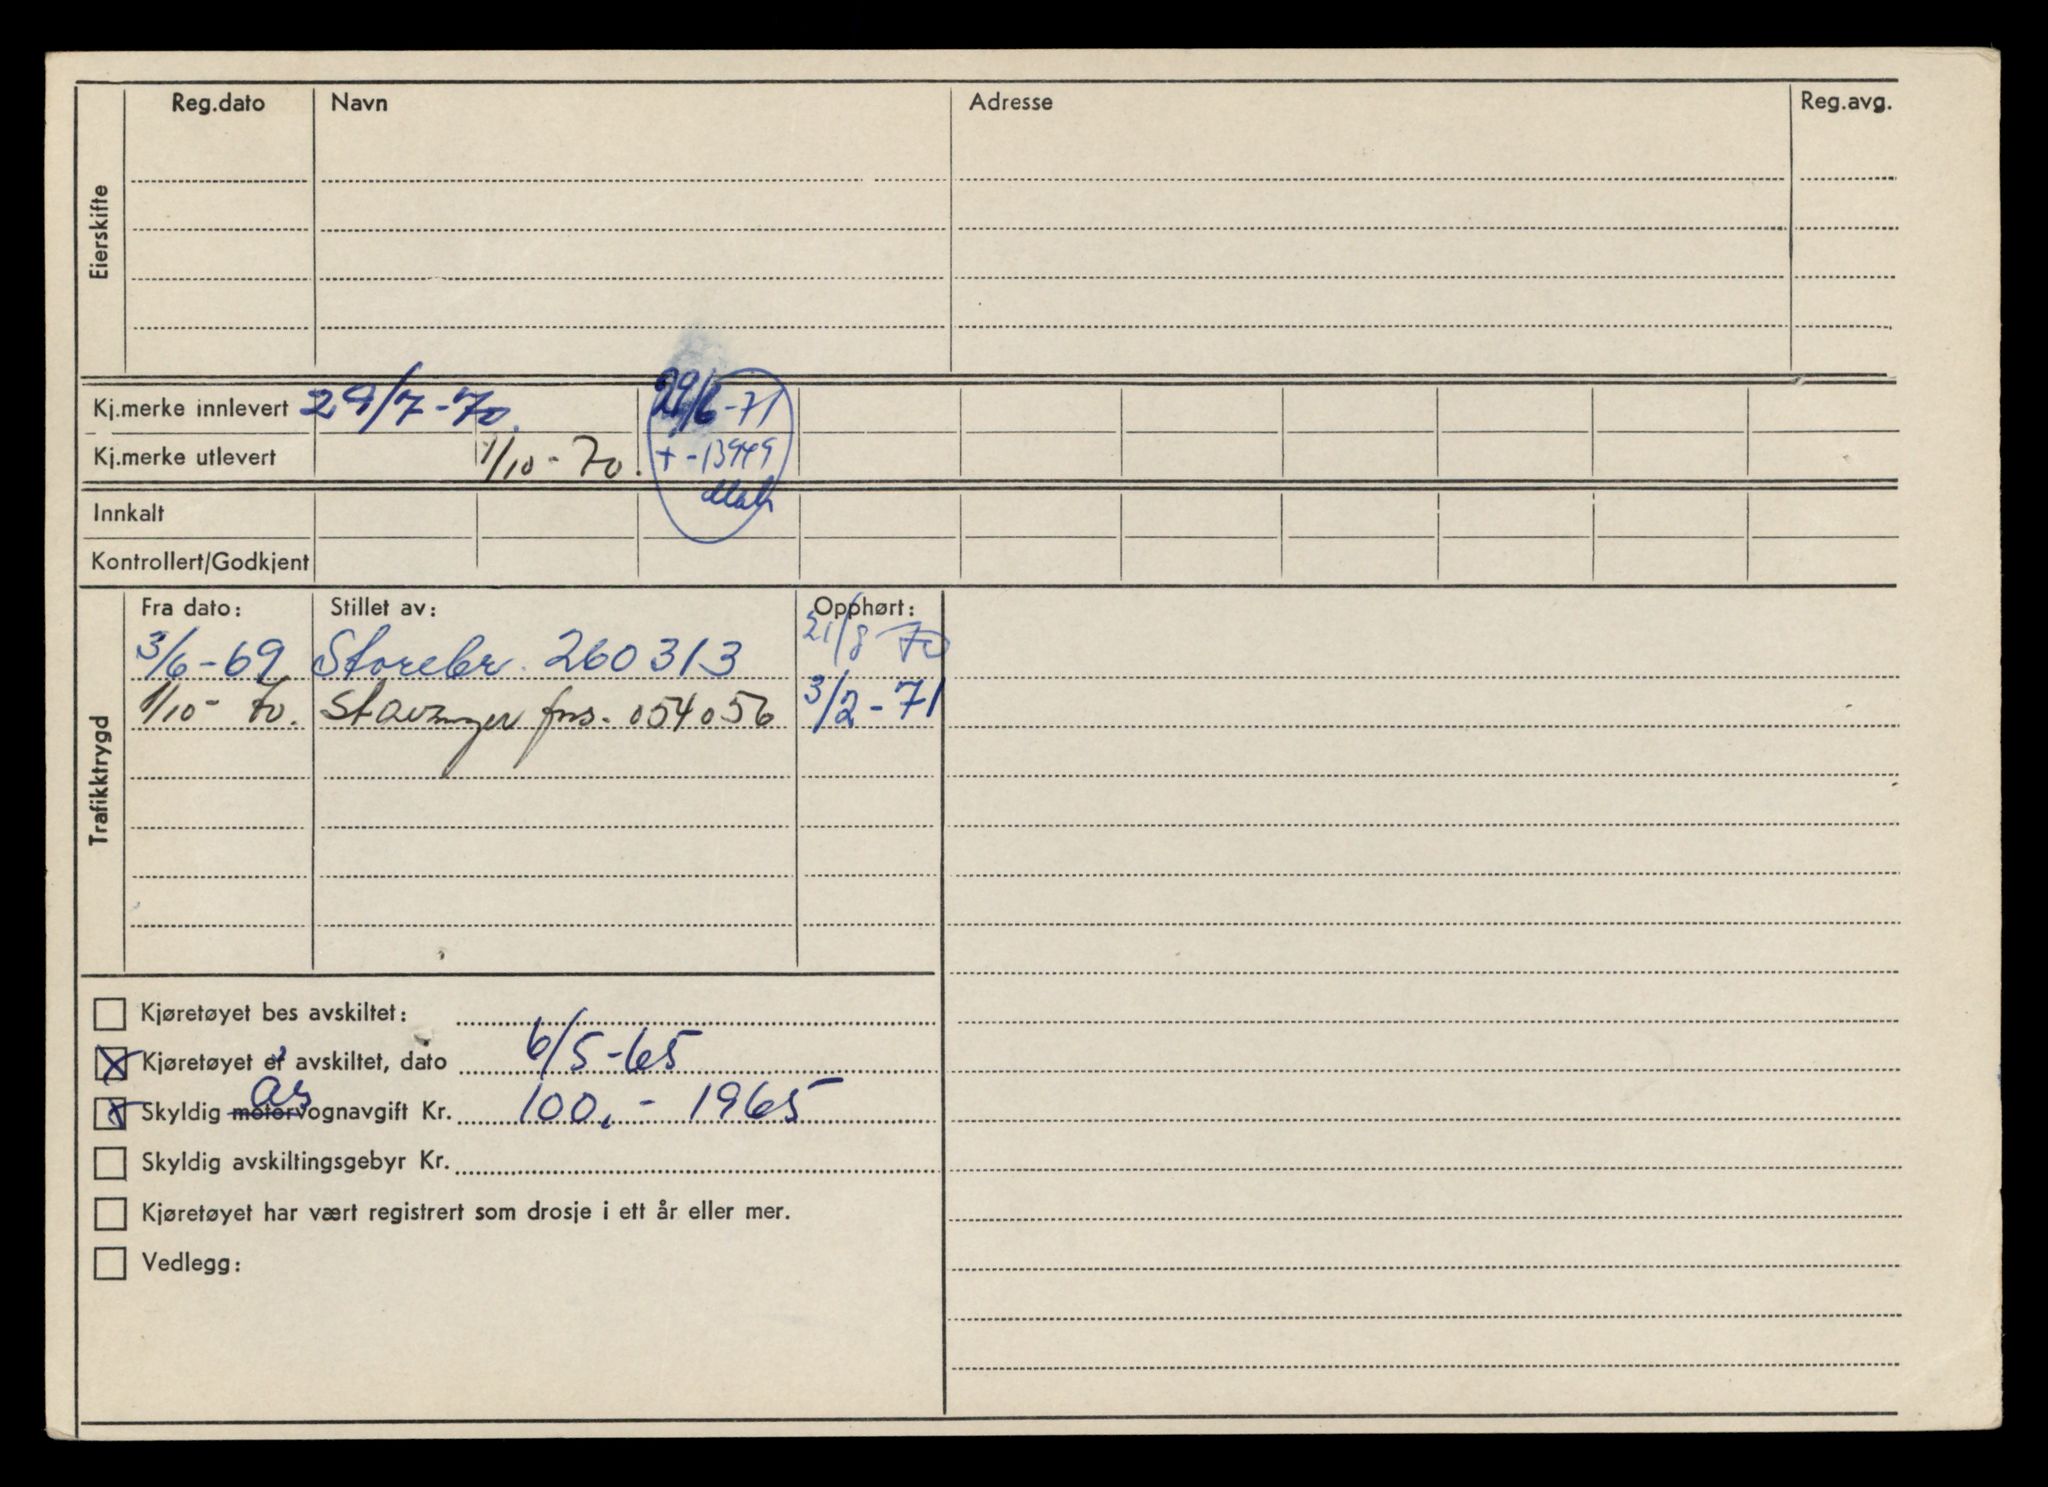 Reg.dato Navn Adresse Reg.avg.
Eierskifte
Kj.merke innlevert 29/7-70. 29/6-71
Kj.merke utlevert 1/10-70. + -13949
Innkalt
Kontrollert/Godkjent
Trafikktrygd
Fra dato: Stillet av: Opphørt:
3/6-69 Storebr. 260313 21/8 70
1/10-70. Stavanger fors. 054056 3/2-71
Kjøretøyet bes avskiltet:
Kjøretøyet er avskiltet, dato 6/5-65
Skyldig motorvognavgift Kr. 100,- 1965
Skyldig avskiltingsgebyr Kr.
Kjøretøyet har vært registrert som drosje i ett år eller mer.
Vedlegg: